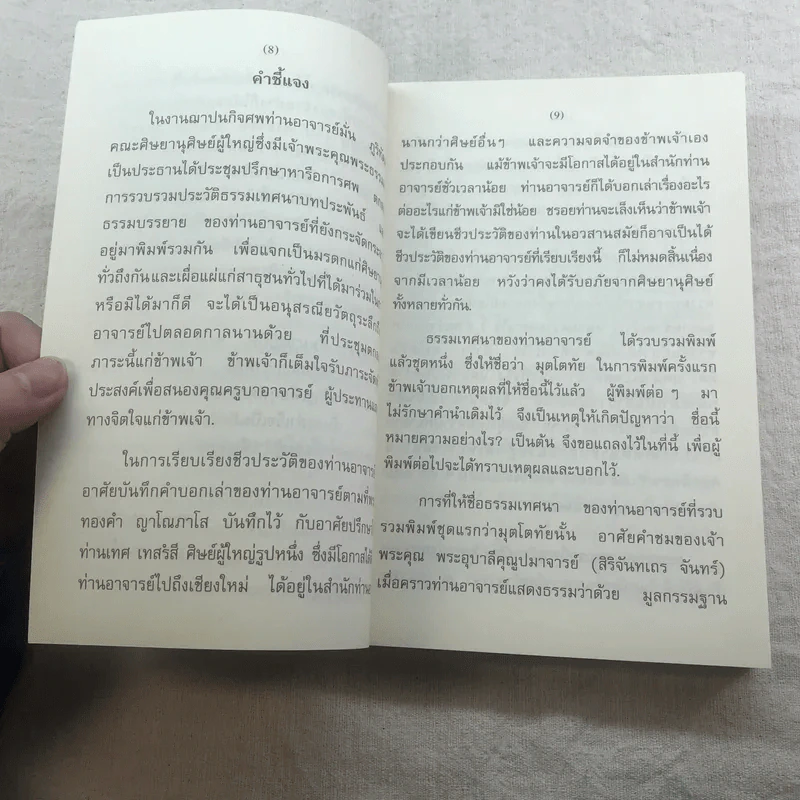 (8)
คำชี้แจง
ในงานฌาปนกิจศพท่านอาจารย์มั่น
คณะศิษยานุศิษย์ผู้ใหญ่ซึ่งมีเจ้าพระคุณพระธรรม
เป็นประธานได้ประชุมปรึกษาหารือการศพ
การรวบรวมประวัติธรรมเทศนาบทประพันธ์
ธรรมบรรยาย ของท่านอาจารย์ที่ยังกระจัดกระ
อยู่มาพิมพ์รวมกัน เพื่อแจกเป็นมรดกแก่ศิษยา
ทั่วถึงกันและเผื่อแผ่แก่สาธุชนทั่วไปที่ได้มาร่วมใน
หรือมิได้มาก็ดี จะได้เป็นอนุสรณียวัตถุระลึก
อาจารย์ไปตลอดกาลนานด้วย ที่ประชุมตก
ภาระนี้แก่ข้าพเจ้า ข้าพเจ้าก็เต็มใจรับภาระจัด
ประสงค์เพื่อสนองคุณครูบาอาจารย์ ผู้ประทาน
ทางจิตใจแก่ข้าพเจ้า.
ในการเรียบเรียงชีวประวัติของท่านอาจาร
อาศัยบันทึกคำบอกเล่าของท่านอาจารย์ตามที่
ทองคำ ญาโณภาโส บันทึกไว้ กับอาศัยปรึก
ท่านเทศ เทสรํสี ศิษย์ผู้ใหญ่รูปหนึ่ง ซึ่งมีโอกาส
ท่านอาจารย์ไปถึงเชียงใหม่ ได้อยู่ในสำนักท่าน
(9)
นานกว่าศิษย์อื่นๆ และความจดจำของข้าพเจ้าเอง
ประกอบกัน แม้ข้าพเจ้าจะมีโอกาสได้อยู่ในสำนักท่าน
อาจารย์ชั่วเวลาน้อย ท่านอาจารย์ก็ได้บอกเล่าเรื่องอะไร
ต่ออะไรแก่ข้าพเจ้ามิใช่น้อย ชรอยท่านจะเล็งเห็นว่าข้าพเจ้า
จะได้เขียนชีวประวัติของท่านในอวสานสมัยก็อาจเป็นได้
ชีวประวัติของท่านอาจารย์ที่เรียบเรียงนี้ ก็ไม่หมดสิ้นเนื่อง
จากมีเวลาน้อย หวังว่าคงได้รับอภัยจากศิษยานุศิษย์
ทั้งหลายทั่วกัน.
ธรรมเทศนาของท่านอาจารย์ ได้รวบรวมพิมพ์
แล้วชุดหนึ่ง ซึ่งให้ชื่อว่า มุตโตทัย ในการพิมพ์ครั้งแรก
ข้าพเจ้าบอกเหตุผลที่ให้ชื่อนี้ไว้แล้ว ผู้พิมพ์ต่อๆ มา
ไม่รักษาคำนำเดิมไว้ จึงเป็นเหตุให้เกิดปัญหาว่า ชื่อนี้
หมายความอย่างไร? เป็นต้น จึงขอแถลงไว้ในที่นี้ เพื่อผู้
พิมพ์ต่อไปจะได้ทราบเหตุผลและบอกไว้.
การที่ให้ชื่อธรรมเทศนา ของท่านอาจารย์ที่รวบ
รวมพิมพ์ชุดแรกว่ามุตโตทัยนั้น อาศัยคำชมของเจ้า
พระคุณ พระอุบาลีคุณูปมาจารย์ (สิริจันทเถร จันทร์)
เมื่อคราวท่านอาจารย์แสดงธรรมว่าด้วย มูลกรรมฐาน